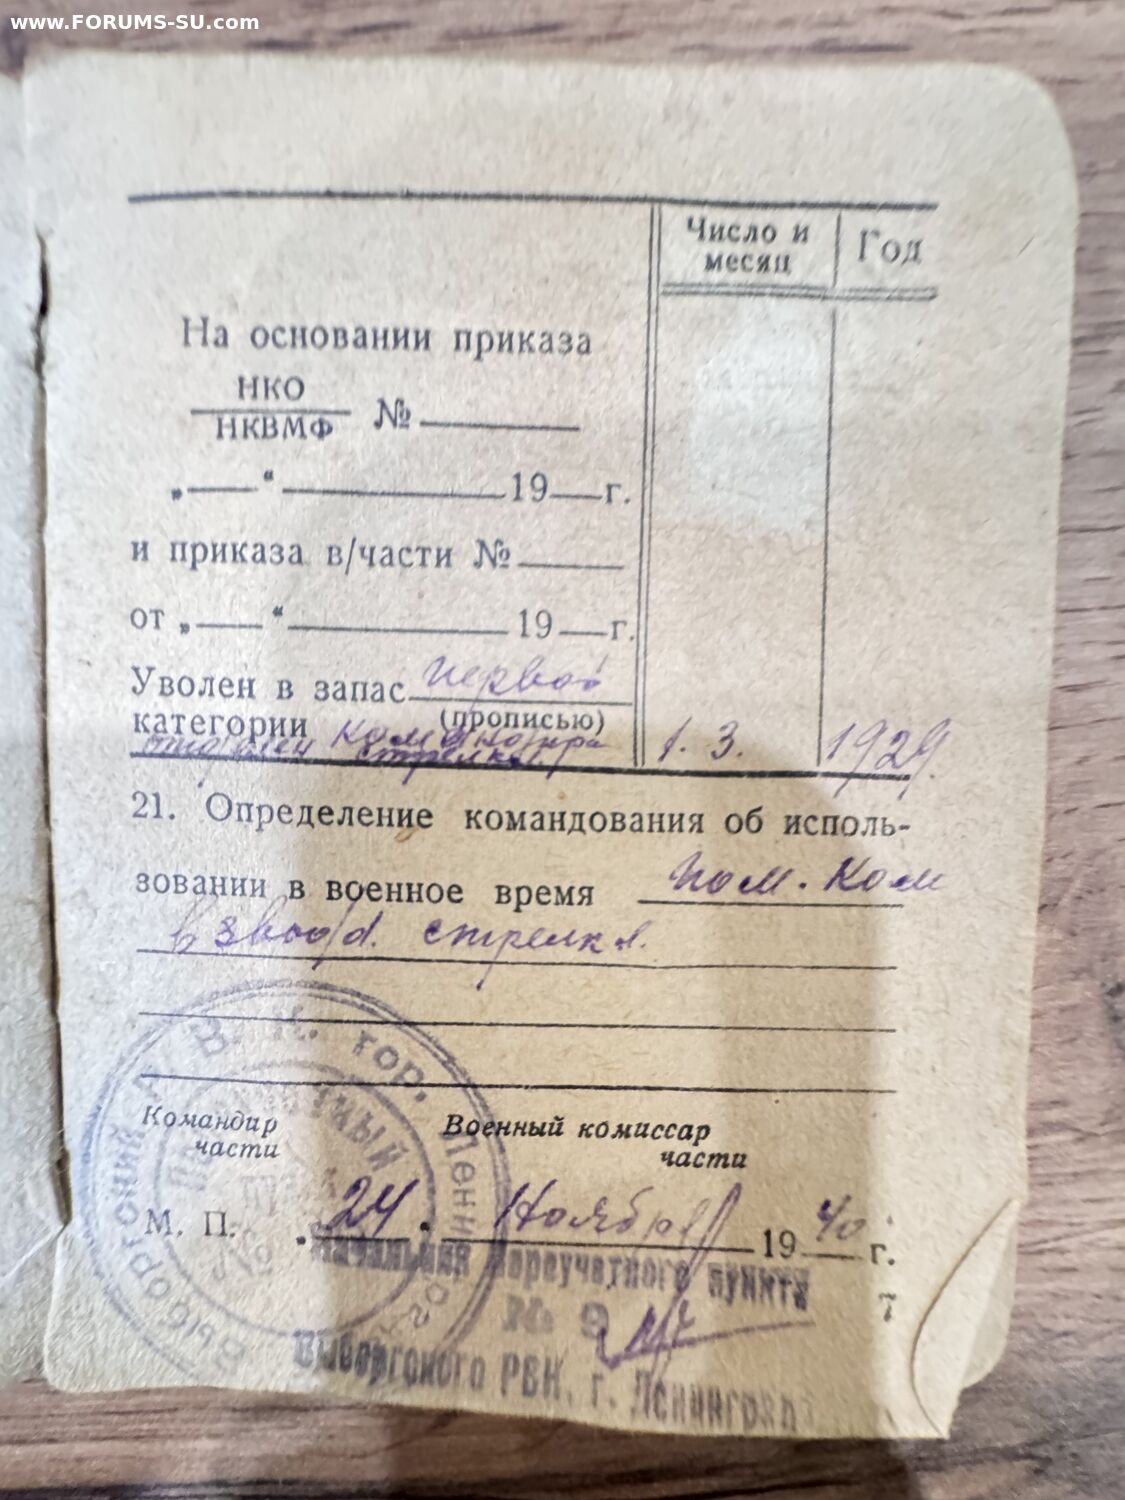 www.FORUMS-SU.com
Число и месяц
Год
На основании приказа
НКО
НКВМФ
№
„ “ 19 г.
и приказа в/части №
от „ “ 19 г.
Уволен в запас первой
(прописью)
категории командира
стрелка
1. 3. 1929.
21. Определение командования об исполь-
зовании в военное время пом. ком
взвода. стрелк.
Командир
части
Военный комиссар
части
М. П. „24“ Ноября 1940 г.
7
Начальник переучетного пункта
№ 9
Выборгского РВК. г. Ленинграда
Выборгский Р. В. К. гор. Ленин